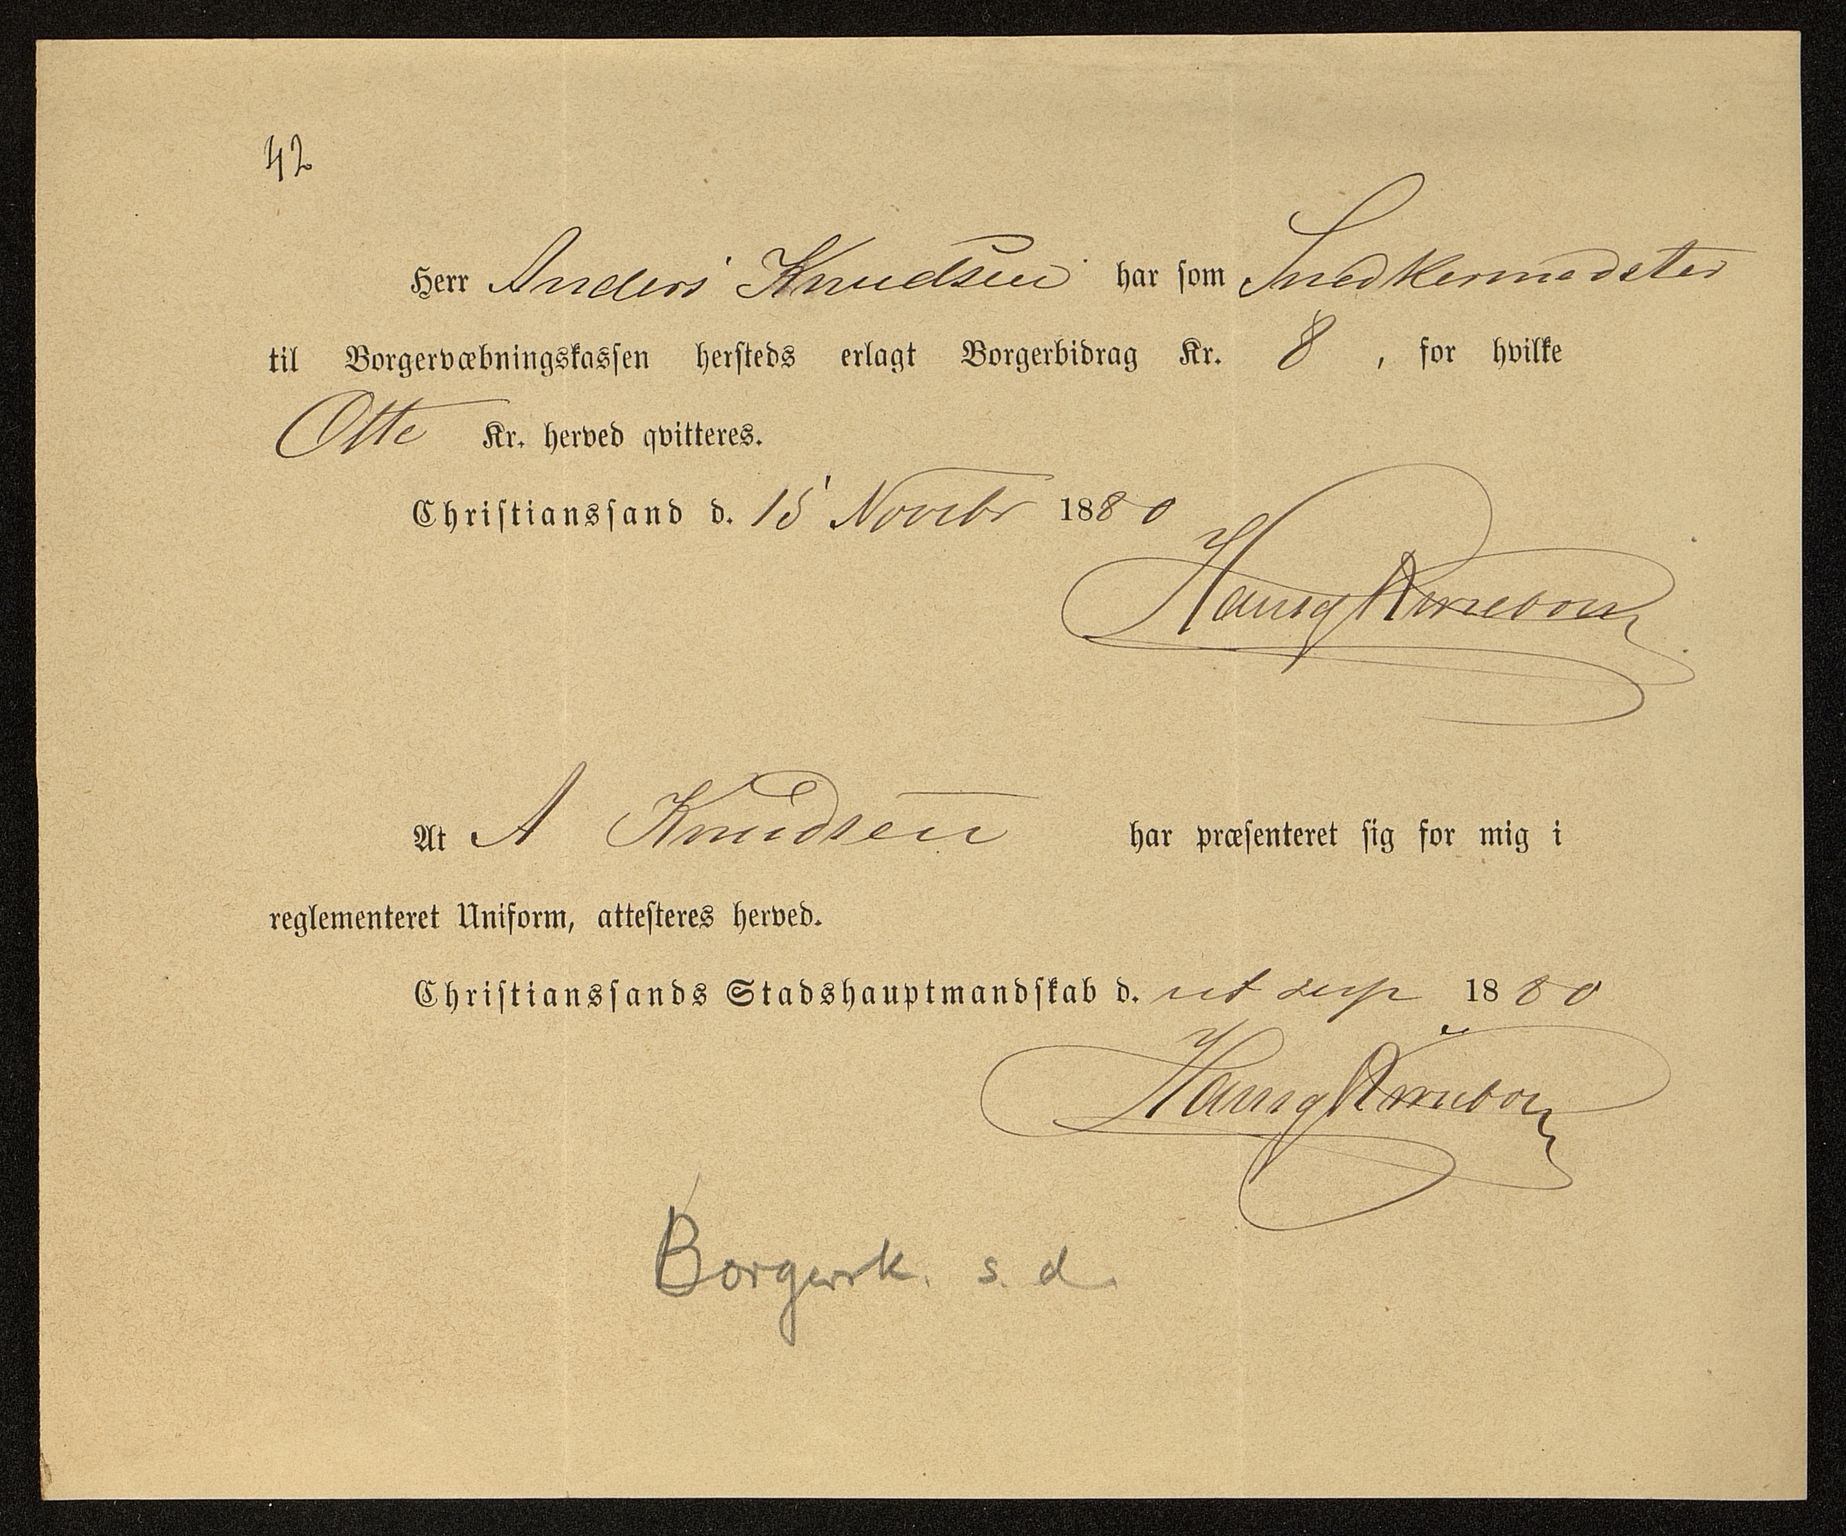 42
Herr Anders Knudsen har som Snedkermedster
til Borgervæbningskassen hersteds erlagt Borgerbidrag Kr. 8, for hvilke
Otte Kr. herved qvitteres.
Christianssand d. 15 Novebr 1880
At A Knudsen har præsenteret sig for mig i
reglementeret Uniform, attesteres herved.
Christianssands Stadshauptmandskab d. ut sup 1880
Borgersk. s. d.